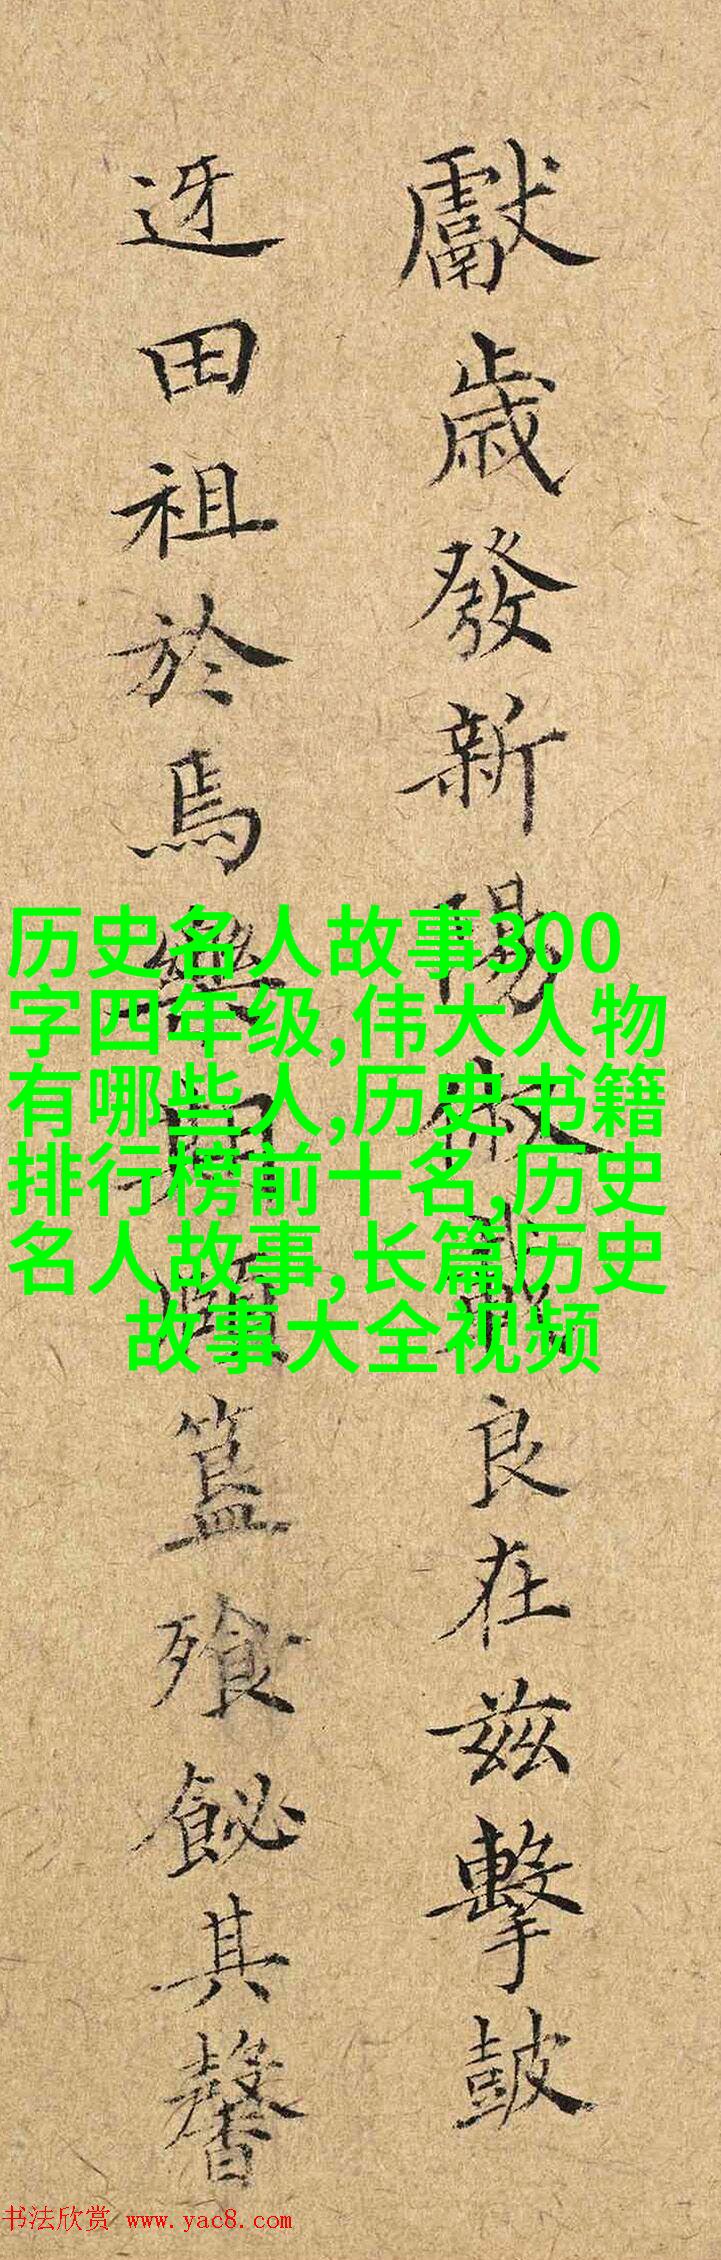 獻歲發新陽俶載良在茲擊鼓
迓田祖於焉樂簋飱飶其馨
历史名人故事300
字四年级,伟大人物
有哪些人,历史书籍
排行榜前十名,历史
名人故事,长篇历史
故事大全视频
书法欣赏 www.yac8.com